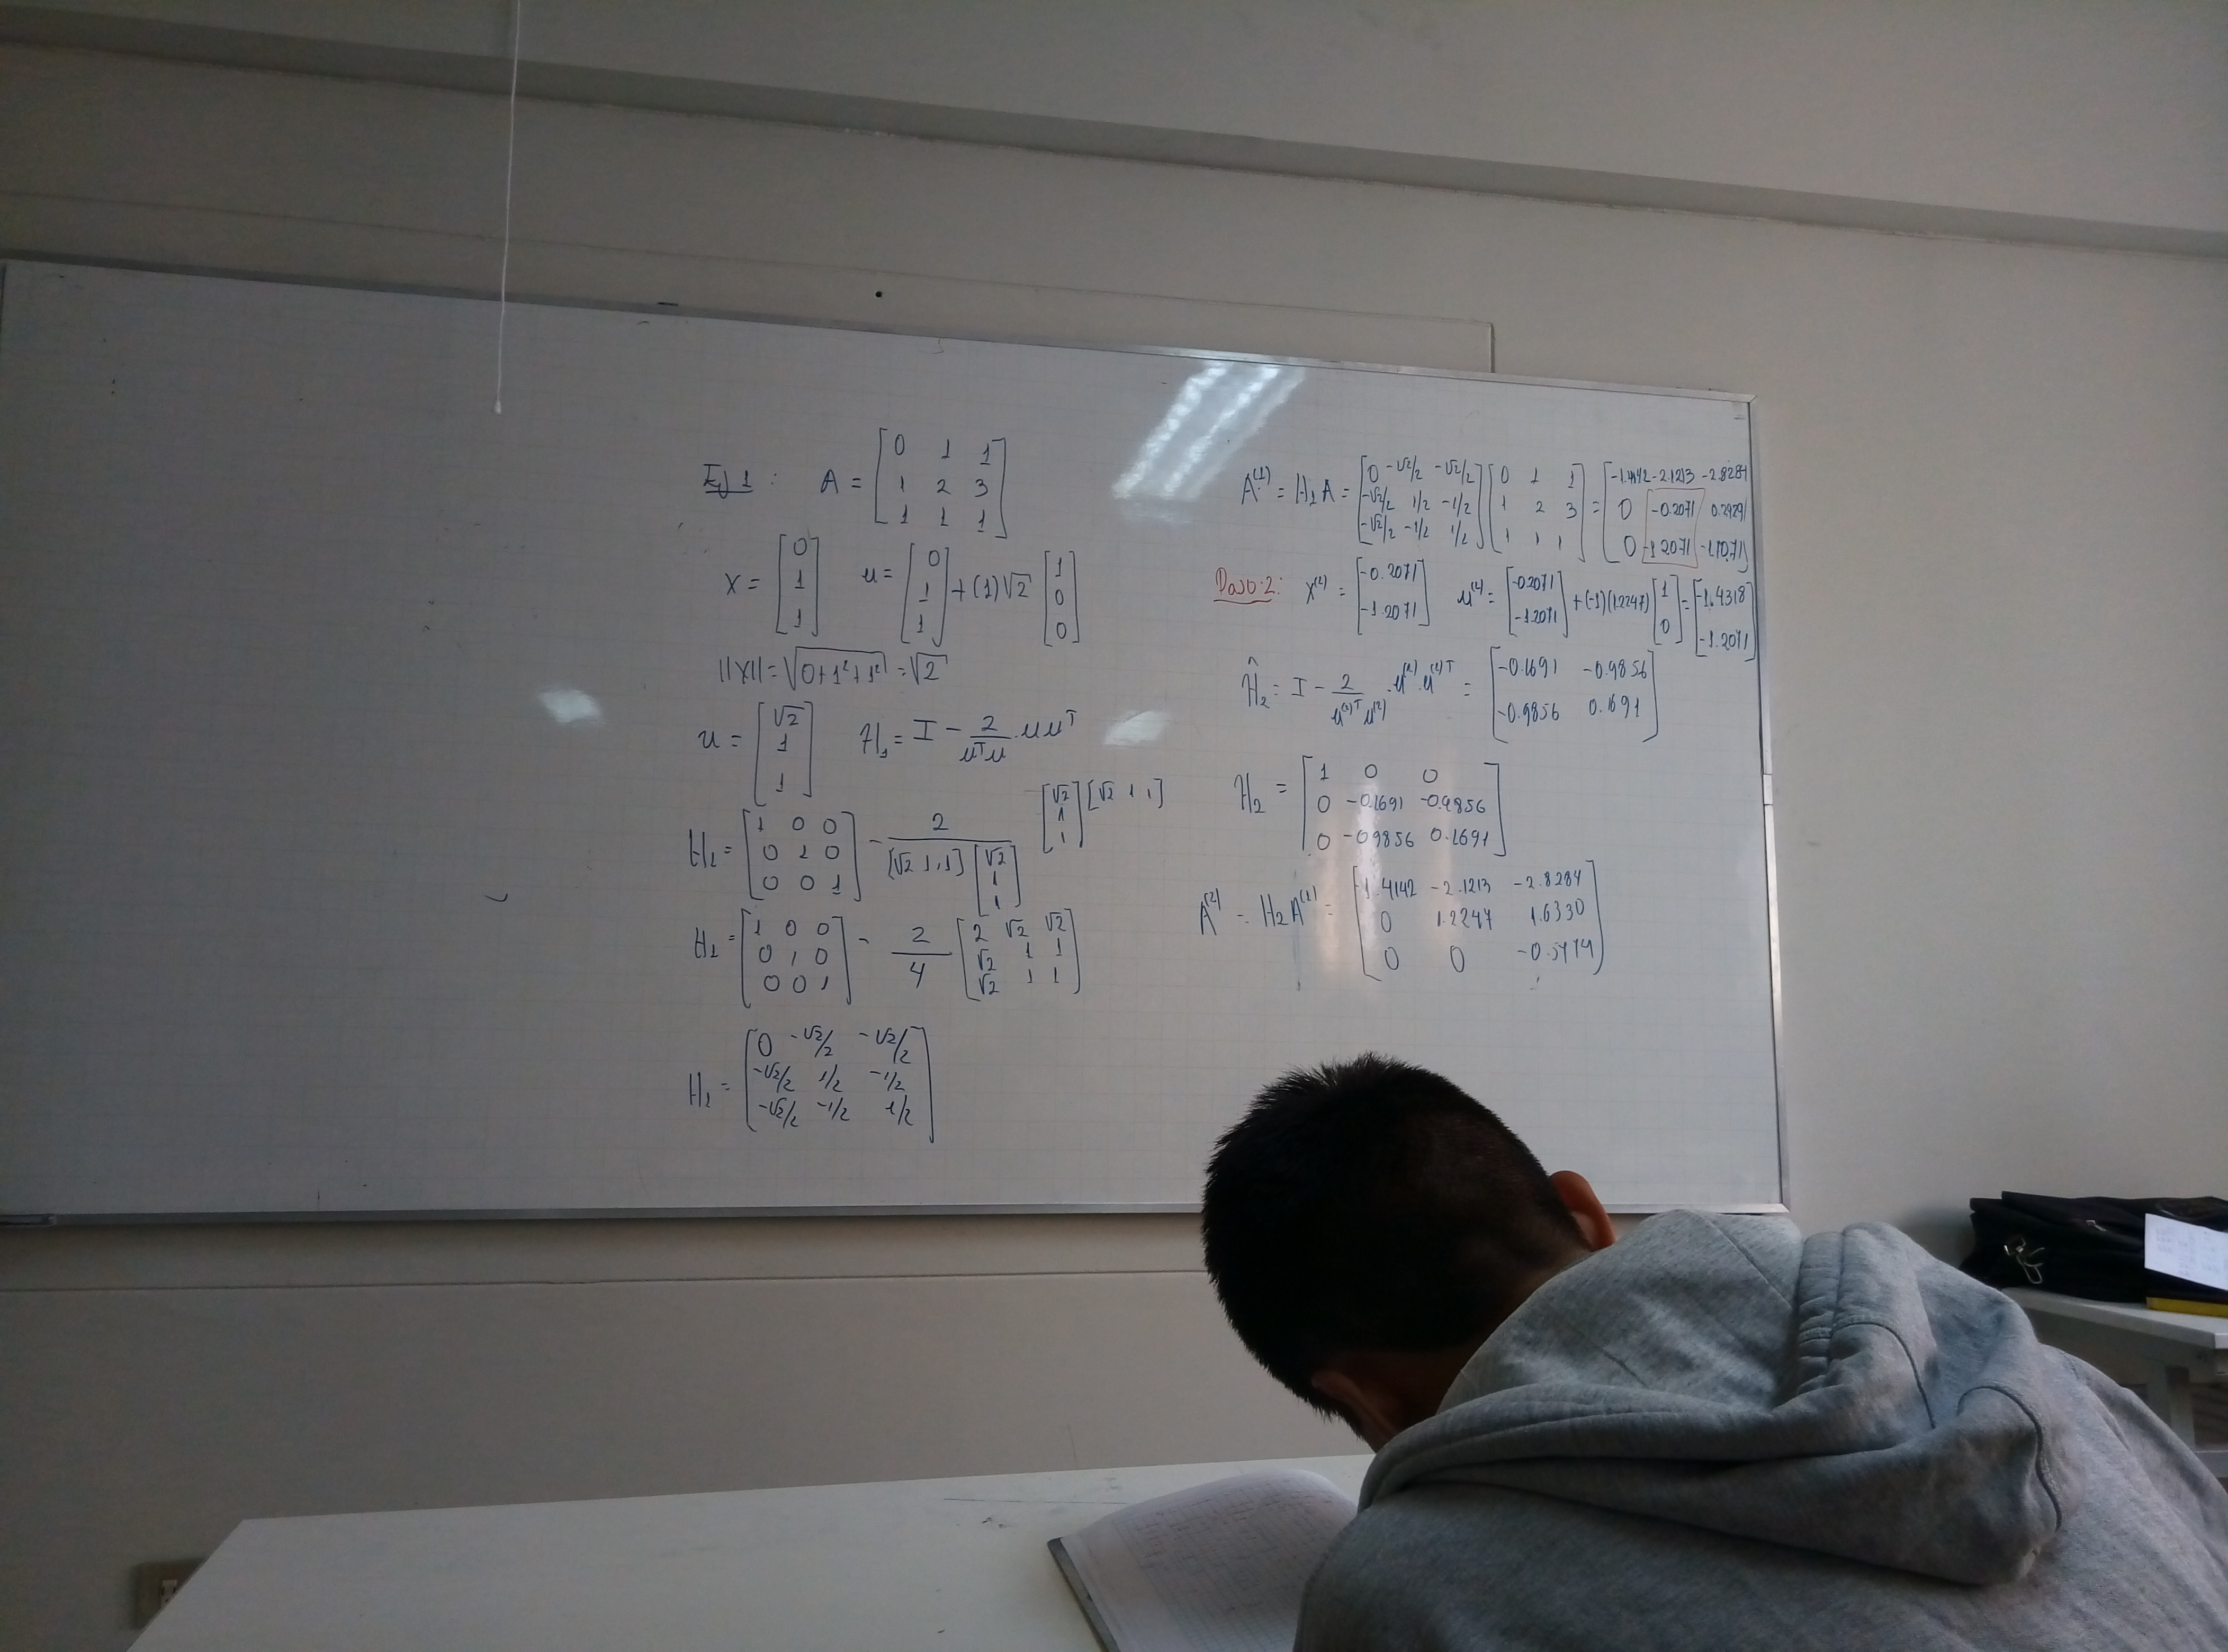 Ej 1 : A = [0 1 1; 1 2 3; 1 1 1]
X = [0; 1; 1] u = [0; 1; 1] + (1)√2 [1; 0; 0]
||X|| = √(0+1²+1²) = √2
u = [√2; 1; 1] H₁ = I − 2/(uᵀu) · u uᵀ
H₁ = [1 0 0; 0 1 0; 0 0 1] − 2/([√2 1 1][√2; 1; 1]) [√2; 1; 1][√2 1 1]
H₁ = [1 0 0; 0 1 0; 0 0 1] − 2/4 [2 √2 √2; √2 1 1; √2 1 1]
H₁ = [0 −√2/2 −√2/2; −√2/2 1/2 −1/2; −√2/2 −1/2 1/2]
A⁽¹⁾ = H₁A = [0 −√2/2 −√2/2; −√2/2 1/2 −1/2; −√2/2 −1/2 1/2] [0 1 1; 1 2 3; 1 1 1] = [−1.4142 −2.1213 −2.8284; 0 −0.2071 0.2929; 0 −1.2071 −1.7071]
Paso 2: X⁽²⁾ = [−0.2071; −1.2071] u⁽²⁾ = [−0.2071; −1.2071] + (−1)(1.2247) [1; 0] = [−1.4318; −1.2071]
Ĥ₂ = I − 2/(u⁽²⁾ᵀu⁽²⁾) · u⁽²⁾ · u⁽²⁾ᵀ = [−0.1691 −0.9856; −0.9856 0.1691]
H₂ = [1 0 0; 0 −0.1691 −0.9856; 0 −0.9856 0.1691]
A⁽²⁾ = H₂A⁽¹⁾ = [−1.4142 −2.1213 −2.8284; 0 1.2247 1.6330; 0 0 −0.5774]